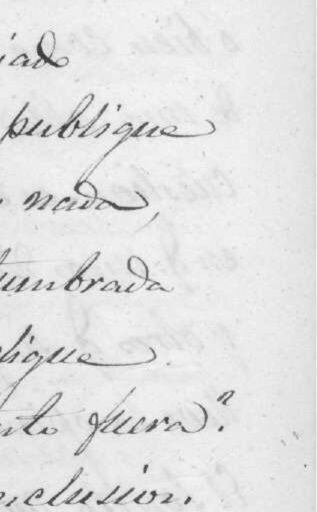 iado
publique
nada,
tumbrada
lique
nto fuera?
nclusion.